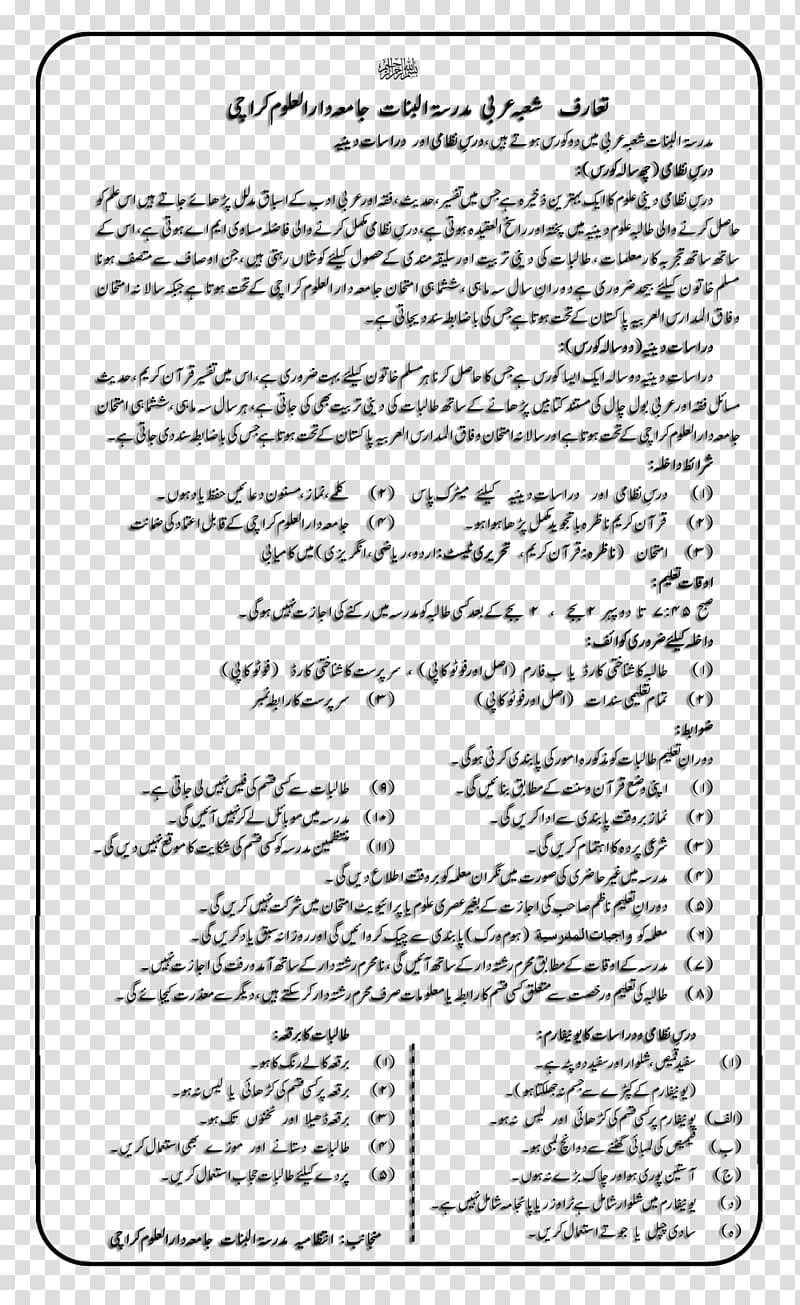 ﷽
تعارف شعبہ عربی مدرسۃ البنات جامعہ دارالعلوم کراچی
مدرسۃ البنات شعبہ عربی میں دو کورس ہوتے ہیں، درسِ نظامی اور دراساتِ دینیہ
درسِ نظامی (چھ سالہ کورس):
درسِ نظامی دینی علوم کا ایک بہترین ذخیرہ ہے جس میں تفسیر، حدیث، فقہ اور عربی ادب کے اسباق مدلل پڑھائے جاتے ہیں اس علم کو
حاصل کرنے والی طالبہ علومِ دینیہ میں پختہ اور راسخ العقیدہ ہوتی ہے، درسِ نظامی مکمل کرنے والی فاضلہ مساوی ایم اے ہوتی ہے، اس کے
ساتھ ساتھ تجربہ کار معلمات، طالبات کی دینی تربیت اور سلیقہ مندی کے حصول کیلئے کوشاں رہتی ہیں، جن اوصاف سے متصف ہونا
مسلم خاتون کیلئے بیحد ضروری ہے دورانِ سال سہ ماہی، ششماہی امتحان جامعہ دارالعلوم کراچی کے تحت ہوتا ہے جبکہ سالانہ امتحان
وفاق المدارس العربیہ پاکستان کے تحت ہوتا ہے جس کی باضابطہ سند دیجاتی ہے۔
دراسات دینیہ (دو سالہ کورس):
دراساتِ دینیہ دو سالہ ایک ایسا کورس ہے جس کا حاصل کرنا ہر مسلم خاتون کیلئے بہت ضروری ہے، اس میں تفسیر قرآن کریم، حدیث
مسائل فقہ اور عربی بول چال کی مستند کتابیں پڑھانے کے ساتھ طالبات کی دینی تربیت بھی کی جاتی ہے، ہر سال سہ ماہی، ششماہی امتحان
جامعہ دارالعلوم کراچی کے تحت ہوتا ہے اور سالانہ امتحان وفاق المدارس العربیہ پاکستان کے تحت ہوتا ہے جس کی باضابطہ سند دی جاتی ہے۔
شرائط داخلہ:
(۱) درسِ نظامی اور دراساتِ دینیہ کیلئے میٹرک پاس (۲) کلمے، نماز، مسنون دعائیں حفظ یاد ہوں۔
(۲) قرآن کریم ناظرہ با تجوید مکمل پڑھا ہوا ہو۔ (۴) جامعہ دارالعلوم کراچی کے قابل اعتماد کی ضمانت
(۳) امتحان (ناظرہ: قرآن کریم، تحریری ٹیسٹ: اردو، ریاضی، انگریزی) میں کامیابی
اوقات تعلیم:
صبح ۷:۴۵ تا دوپہر ۲ بجے ، ۲ بجے کے بعد کسی طالبہ کو مدرسہ میں رکنے کی اجازت نہیں ہوگی۔
داخلہ کیلئے ضروری کوائف:
(۱) طالبہ کا شناختی کارڈ یا ب فارم (اصل اور فوٹو کاپی) ، سرپرست کا شناختی کارڈ (فوٹو کاپی)
(۲) تمام تعلیمی سندات (اصل اور فوٹو کاپی) (۳) سرپرست کا رابطہ نمبر
ضوابط:
دورانِ تعلیم طالبات کو مذکورہ امور کی پابندی کرنی ہوگی۔
(۱) اپنی وضع قرآن وسنت کے مطابق بنائیں گی۔ (۹) طالبات سے کسی قسم کی فیس نہیں لی جاتی ہے۔
(۲) نماز بروقت پابندی سے ادا کریں گی۔ (۱۰) مدرسہ میں موبائل لے کر نہیں آئیں گی۔
(۳) شرعی پردہ کا اہتمام کریں گی۔ (۱۱) منتظمین مدرسہ کو کسی قسم کی شکایت کا موقع نہیں دیں گی۔
(۴) مدرسہ میں غیر حاضری کی صورت میں نگران معلمہ کو بروقت اطلاع دیں گی۔
(۵) دورانِ تعلیم ناظم صاحب کی اجازت کے بغیر عصری علوم یا پرائیویٹ امتحان میں شرکت نہیں کریں گی۔
(۶) معلمہ کو واجبات المدرسیة (ہوم ورک) پابندی سے چیک کروائیں گی اور روزانہ سبق یاد کریں گی۔
(۷) مدرسہ کے اوقات کے مطابق محرم رشتہ دار کے ساتھ آئیں گی، نامحرم رشتہ دار کے ساتھ آمد ورفت کی اجازت نہیں۔
(۸) طالبہ کی تعلیم ورخصت سے متعلق کسی قسم کا رابطہ یا معلومات صرف محرم رشتہ دار کرسکتے ہیں، دیگر سے معذرت کیجائے گی۔
درسِ نظامی ودراسات کا یونیفارم:
(۱) سفید قمیص، شلوار اور سفید دوپٹہ ہے۔
(یونیفارم کے کپڑے سے جسم نہ جھلکتا ہو)۔
(الف) یونیفارم پر کسی قسم کی کڑھائی اور لیس نہ ہو۔
(ب) قمیص کی لمبائی گھٹنے سے دو انچ لمبی ہو۔
(ج) آستین پوری ہو اور چاک بڑے نہ ہوں۔
(د) یونیفارم میں شلوار شامل ہے ٹراوزر یا پائجامہ شامل نہیں ہے۔
(ہ) سادی چپل یا جوتے استعمال کریں۔
طالبات کا برقعہ:
(۱) برقعہ کالے رنگ کا ہو۔
(۲) برقعہ پر کسی قسم کی کڑھائی یا لیس نہ ہو۔
(۳) برقعہ ڈھیلا اور ٹخنوں تک ہو۔
(۴) طالبات دستانے اور موزے بھی استعمال کریں۔
(۵) پردے کیلئے طالبات حجاب استعمال کریں۔
منجانب: انتظامیہ مدرسۃ البنات جامعہ دارالعلوم کراچی